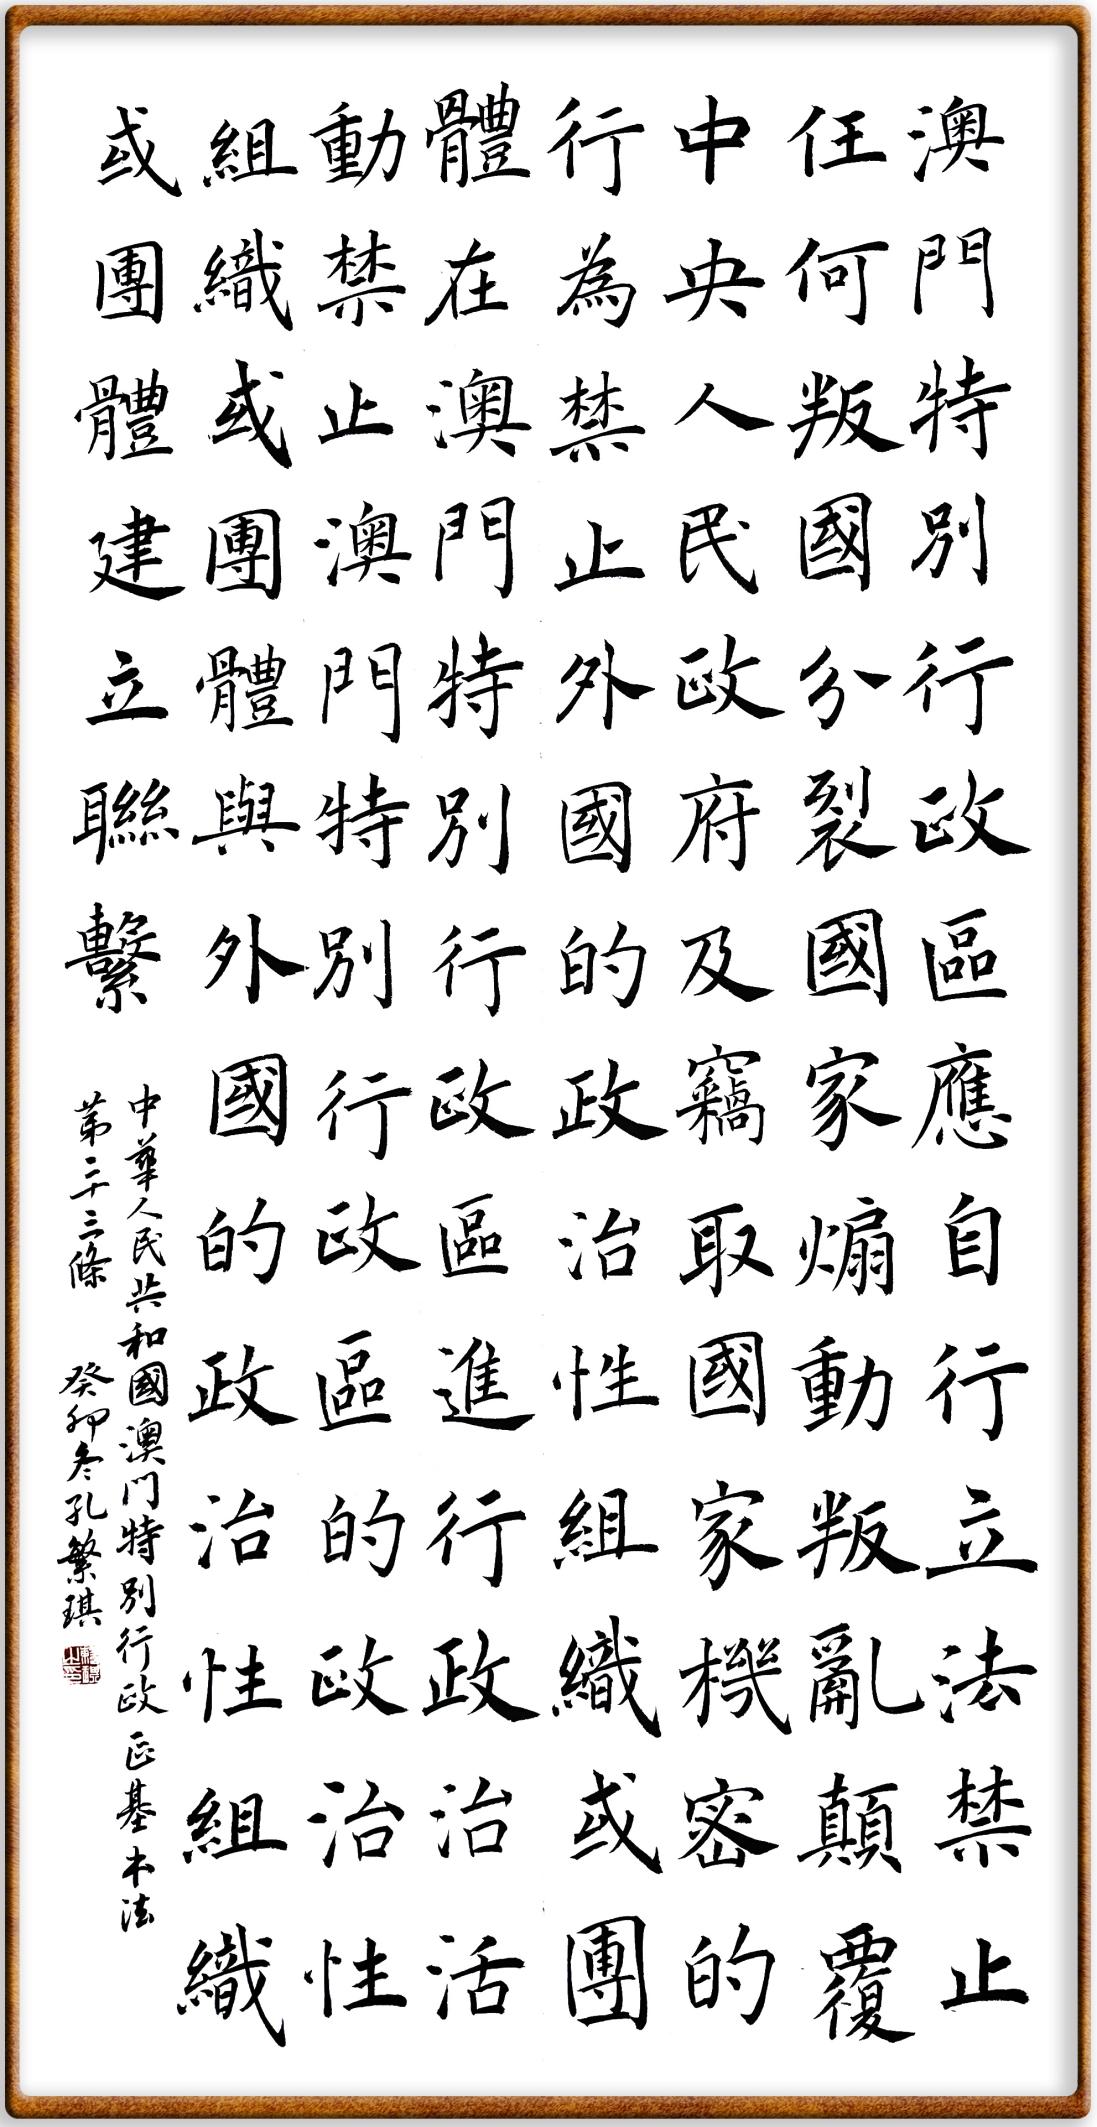 澳門特別行政區應自行立法禁止
任何叛國分裂國家煽動叛亂顛覆
中央人民政府及竊取國家機密的
行為禁止外國的政治性組織或團
體在澳門特別行政區進行政治活
動禁止澳門特別行政區的政治性
組織或團體與外國的政治性組織
或團體建立聯繫
中華人民共和國澳門特別行政區基本法
第二十三條 癸卯冬孔繁琪